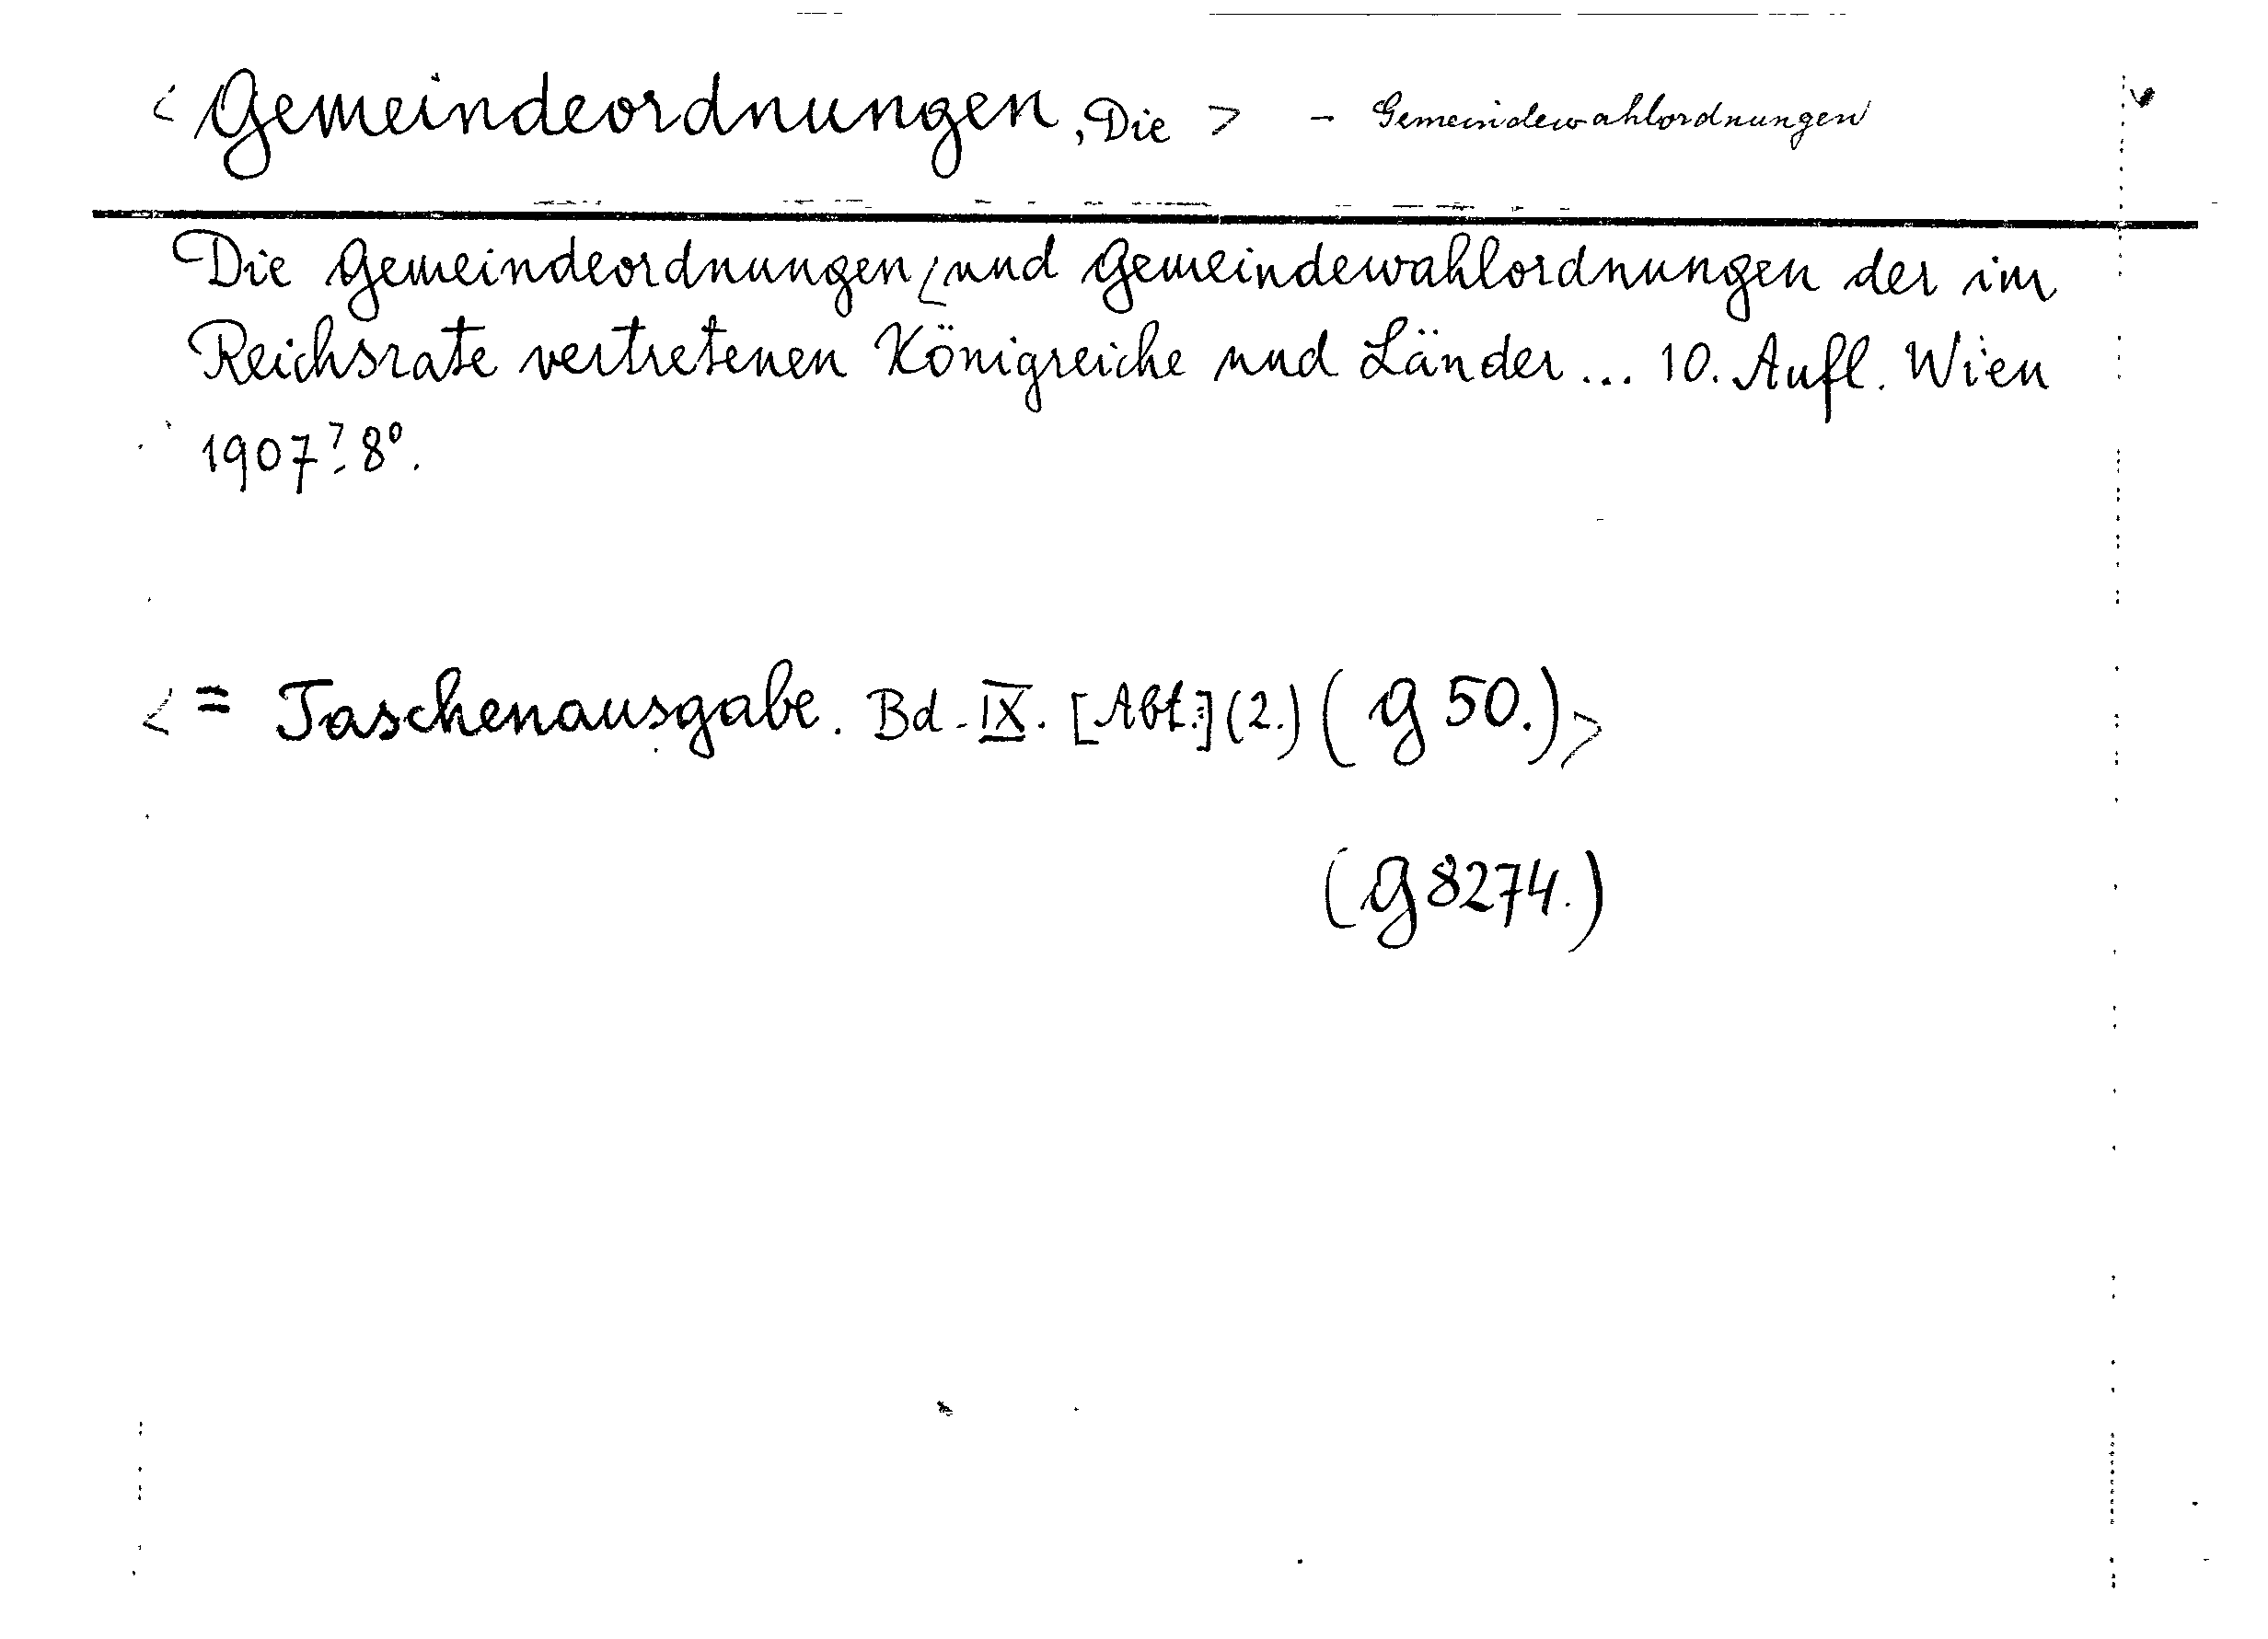 < Gemeindeordnungen, Die > - Gemeindewahlordnungen
Die Gemeindeordnungen und Gemeindewahlordnungen der im
Reichsrate vertretenen Königreiche und Länder ... 10. Aufl. Wien
1907. 8º.
<= Taschenausgabe. Bd. IX. [Abt.] (2.) (G 50.)>
(G 8274.)